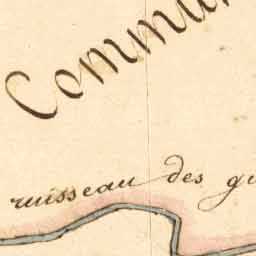 Commun
ruisseau des gu